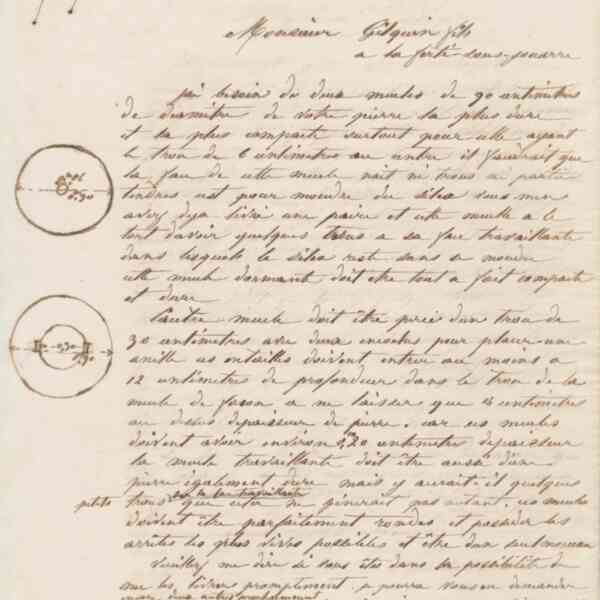 Monsieur Gilquin fils
a la ferté-sous-jouarre
j'ai besoin de deux meules de 90 centimetres
de diamètre de votre pierre la plus dure
et la plus compacte surtout pour celle ayant
le trou de 6 centimetres au centre il faudrait que
la face de cette meule n'ait ni trous ni partie
tendres c'est pour moudre du silex vous m'en
avez deja livré une paire et cette meule a le
tort d'avoir quelques trous a sa face travaillante
dans lesquels le silex reste sans se moudre
cette meule dormant doit etre tout a fait compacte
et dure
0,06
0,90
L'autre meule doit être percé d'un trou de
30 centimètres avec deux encoches pour placer une
anille ces entailles doivent entrer au moins a
12 centimetres de profondeur dans le trou de la
meule de façon a ne laisser que 8 centimetres
au dessus d'epaisseur de pierre. car ces meules
doivent avoir environ 0,20 centimetres d'epaisseur
la meule travaillante doit être aussi d'une
pierre également dure mais y aurait-il quelques
petits trous sur la face travaillante que cela ne gênerait pas autant. ces meules
doivent être parfaitement rondes et posseder les
arrêtes les plus vives possibles et être d'un seul morceau
0,30
0,90
Veuillez me dire si vous êtes dans la possibilité de
me les livrer promptement.